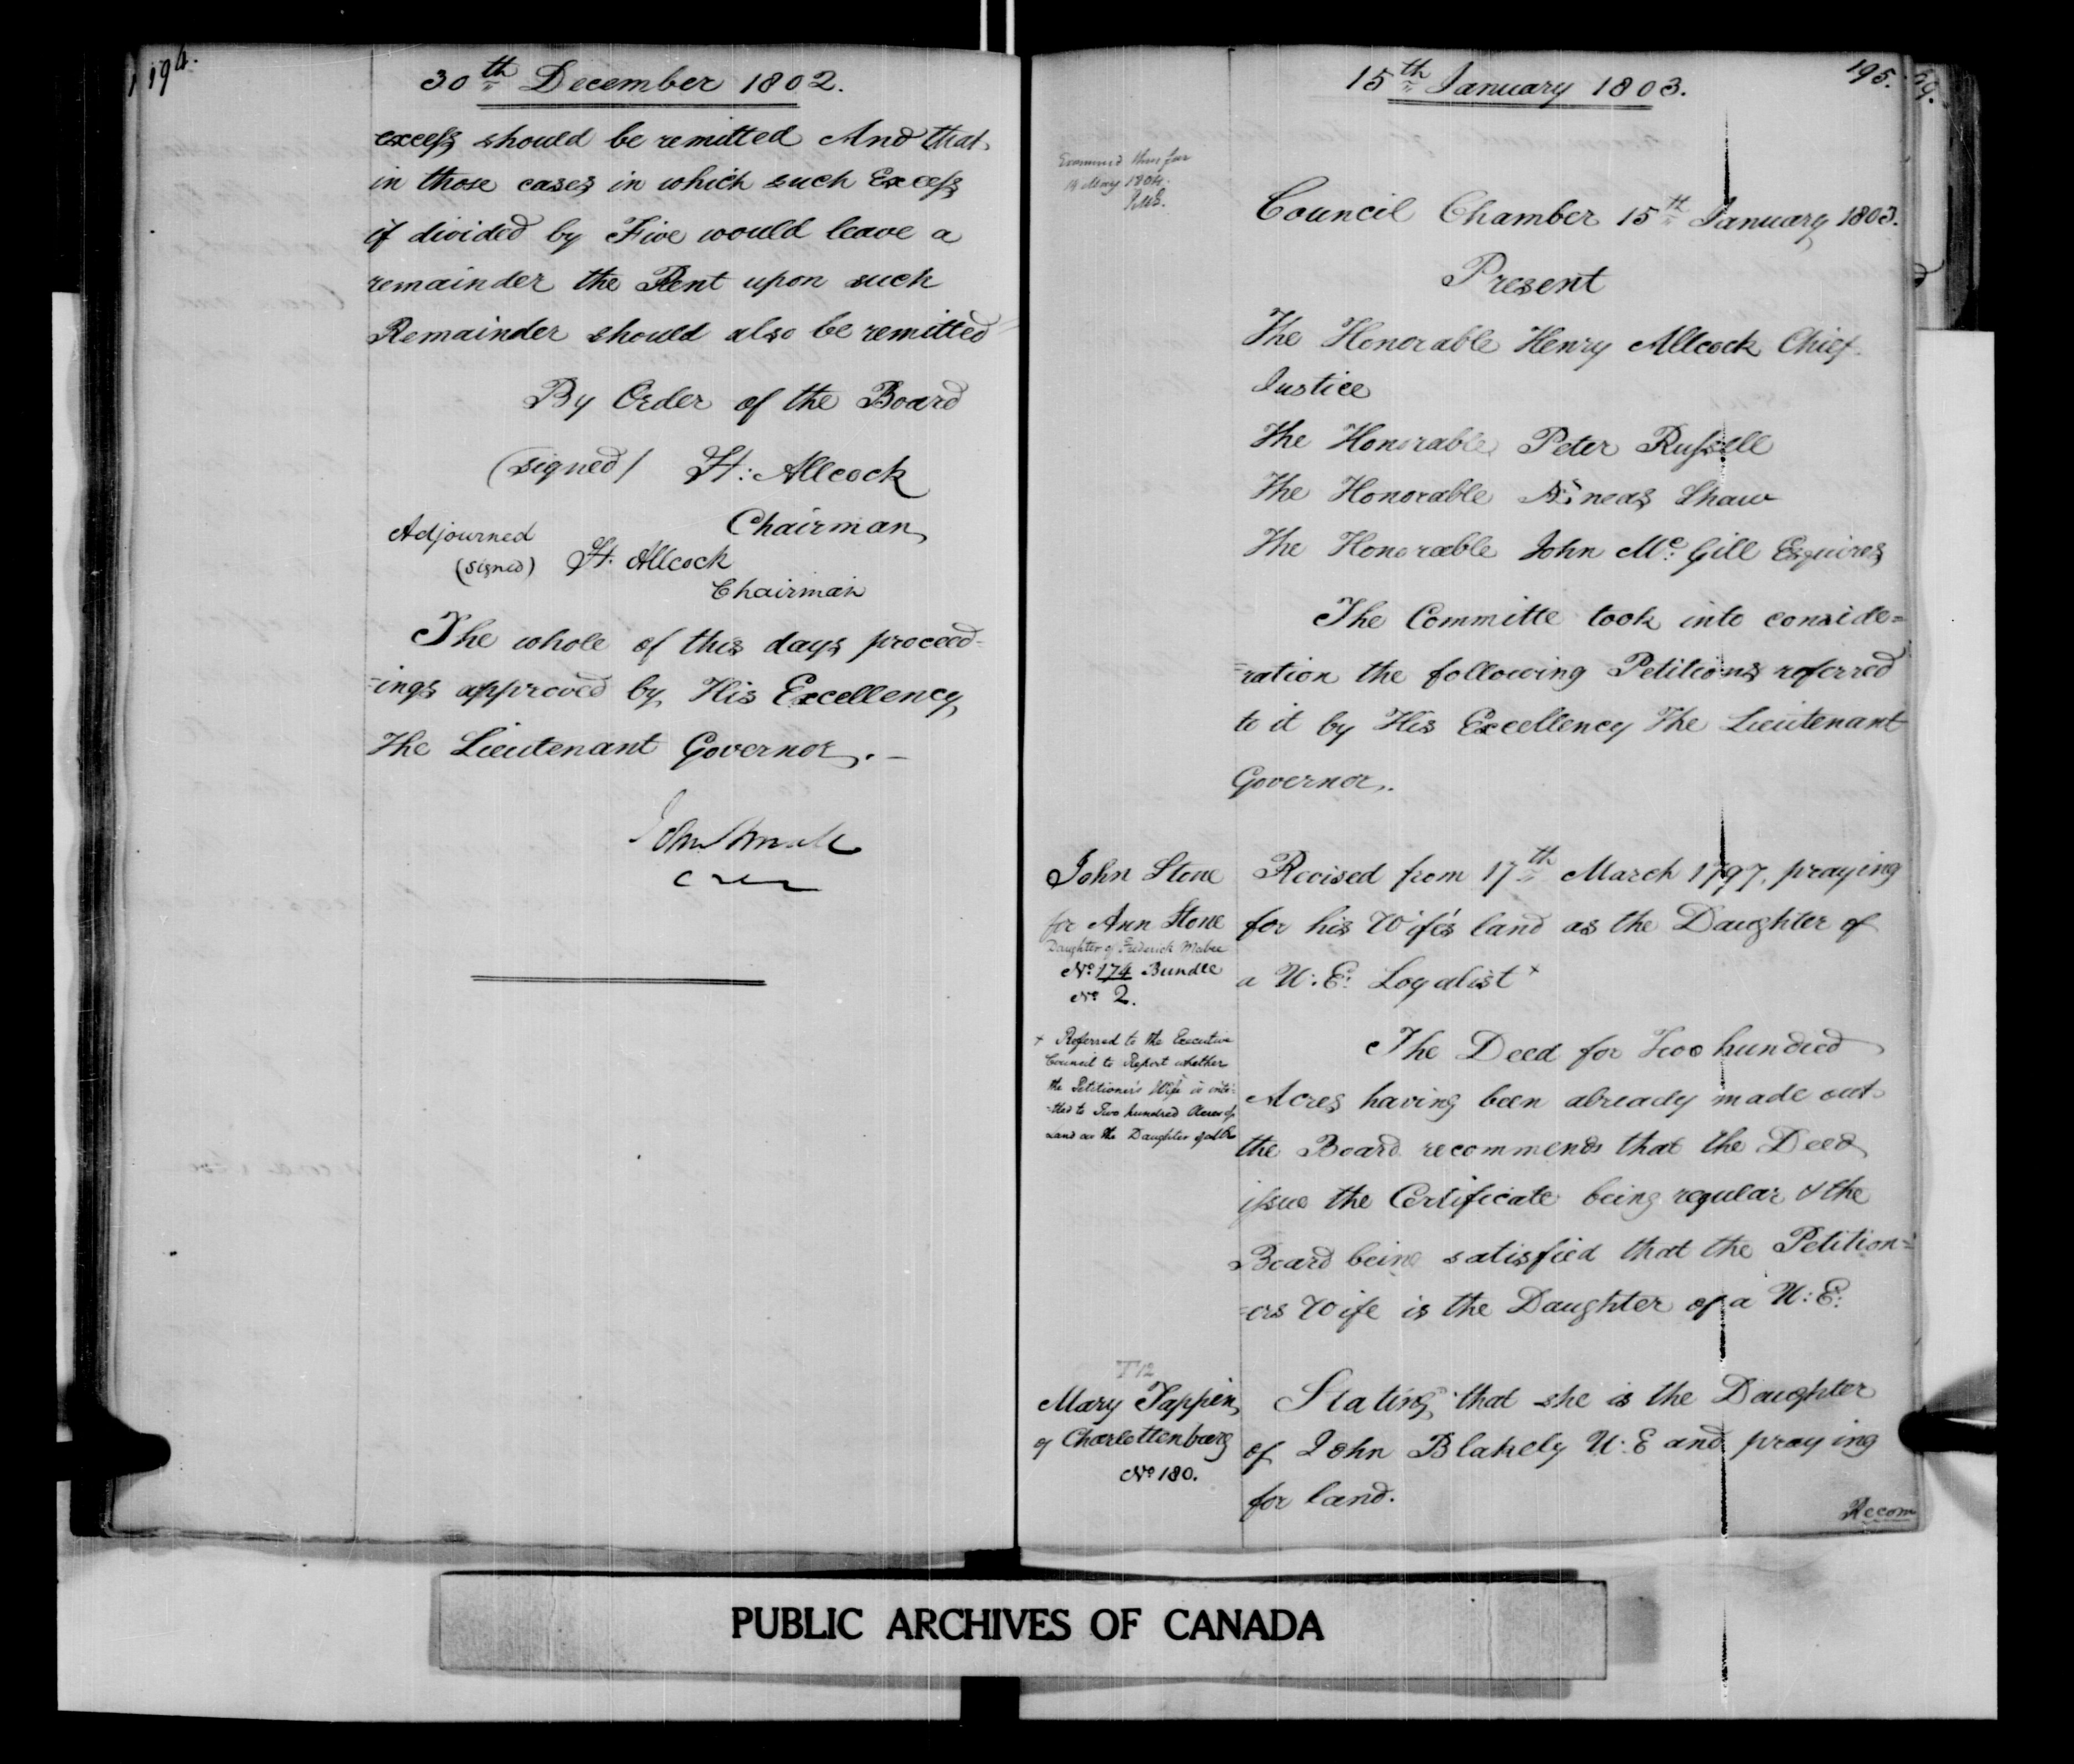 194.
30th December 1802.
excess should be remitted And that
in those cases in which such Excess
if divided by Five would leave a
remainder the Rent upon such
Remainder should also be remitted
By Order of the Board
(signed) H: Allcock
Chairman
Adjourned
(signed) H. Allcock
Chairman
The whole of this days proceed-
=ings approved by His Excellency
The Lieutenant Governor. –
John Small
195.
15th January 1803.
Examined thus far
May 1804.
Council Chamber 15th January 1803.
Present
The Honorable Henry Allcock Chief
Justice
The Honorable Peter Russell
The Honorable Æneas Shaw
The Honorable John Mc. Gill Esquires
The Committe took into conside=
=ration the following Petitions referred
to it by His Excellency The Lieutenant
Governor.
John Stone
for Ann Stone
Daughter of Frederick Mabee
No. 174 Bundle
No. 2.
Revised from 17th March 1797, praying
for his Wife's land as the Daughter of
a U: E: Loyalist +
+ Referred to the Executive
Council to Report whether
the Petitioner's Wife is inti=
=tled to Two hundred Acres of
Land as the Daughter of a
The Deed for Two hundred
Acres having been already made out
the Board recommends that the Deed
issue the Certificate being regular & the
Board being satisfied that the Petition=
=ers Wife is the Daughter of a U: E:
T 12
Mary Tappin
of Charlottenburg
No. 180.
Stating that she is the Daughter
of John Blakely U: E and praying
for land.
Recom
PUBLIC ARCHIVES OF CANADA